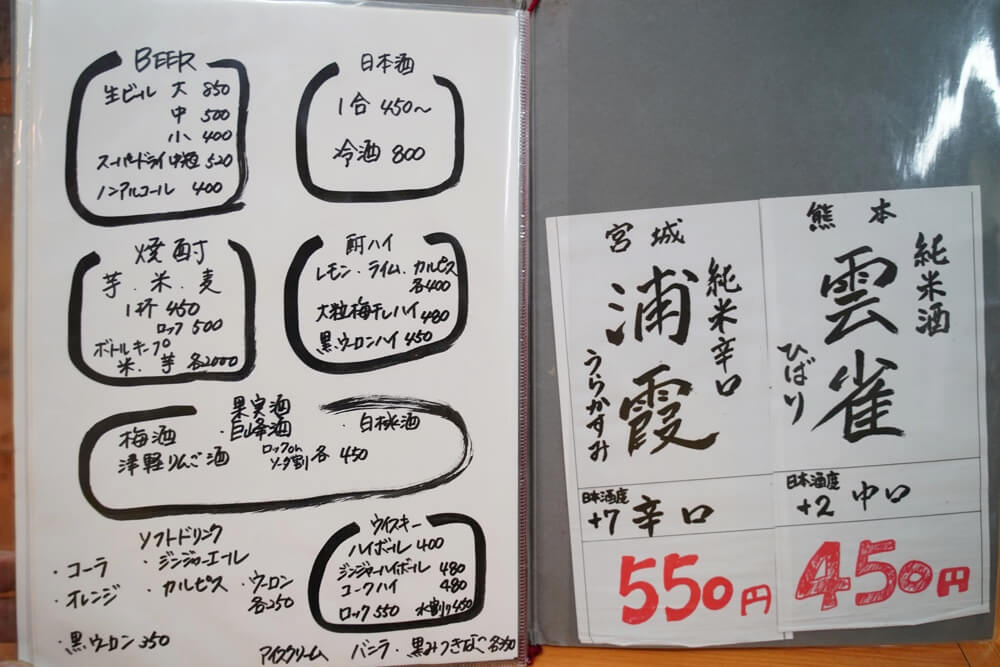 BEER
生ビール 大 850
中 500
小 400
スーパードライ中短 520
ノンアルコール 400
日本酒
1合 450〜
冷酒 800
焼酎
芋.米.麦
1杯 450
ロック 500
ボトルキープ
米.芋 各2000
酎ハイ
レモン.ライム.カルピス
各400
大粒梅干しハイ 480
黒ウーロンハイ 450
果実酒
梅酒 ・巨峰酒 ・白桃酒
津軽りんご酒 ロックor
ソーダ割 各 450
ソフトドリンク
・コーラ ・ジンジャーエール
・オレンジ カルピス ・ウーロン
各250
・黒ウーロン 350
ウイスキー
ハイボール 400
ジンジャーハイボール 480
コークハイ 480
ロック 550 水割り 450
アイスクリーム バニラ・黒みつきなこ
宮城
純米辛口
浦霞
うらかすみ
日本酒度
+7 辛口
550円
熊本
純米酒
雲雀
ひばり
日本酒度
+2 中口
450円